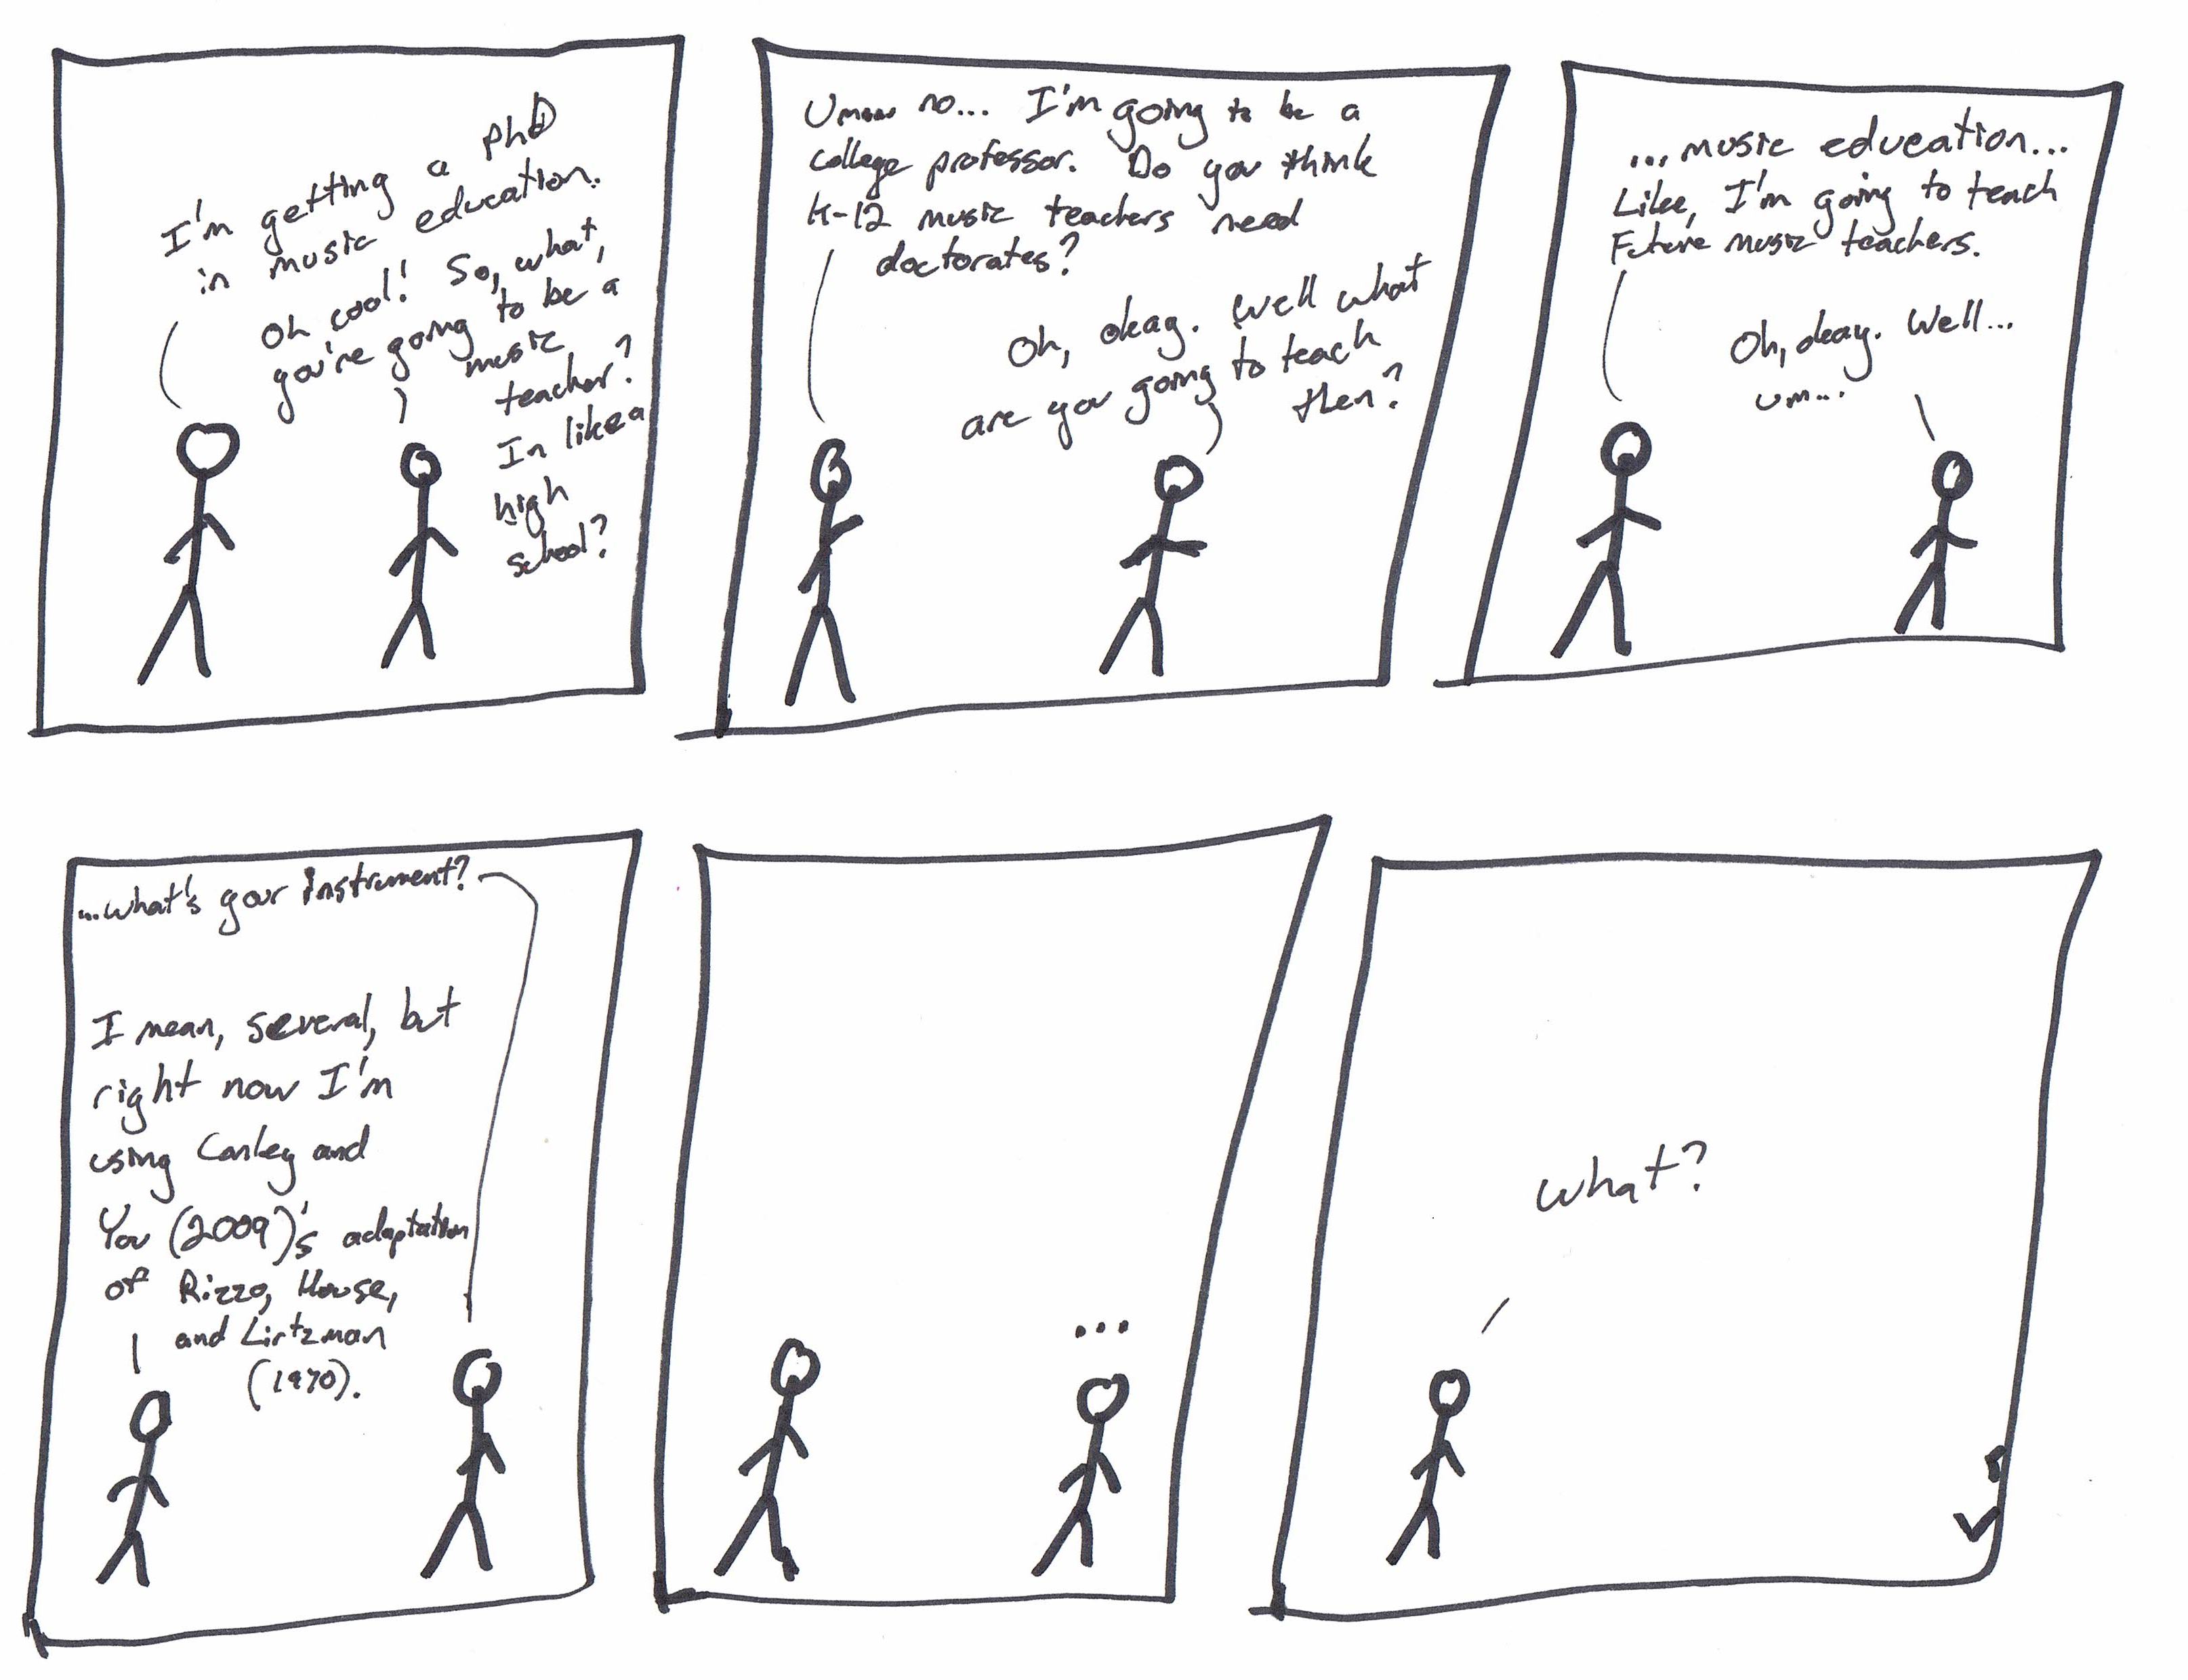 I'm getting a PhD
in music education.
Oh cool! So, what,
you're going to be a
music
teacher?
In like a
high
school?
Ummm no... I'm going to be a
college professor. Do you think
K-12 music teachers need
doctorates?
Oh, okay. Well what
are you going to teach
then?
...music education...
Like, I'm going to teach
future music teachers.
Oh, okay. Well...
um...
...what's your instrument?
I mean, several, but
right now I'm
using Conley and
You (2009)'s adaptation
of Rizzo, House,
and Lirtzman
(1970).
...
what?